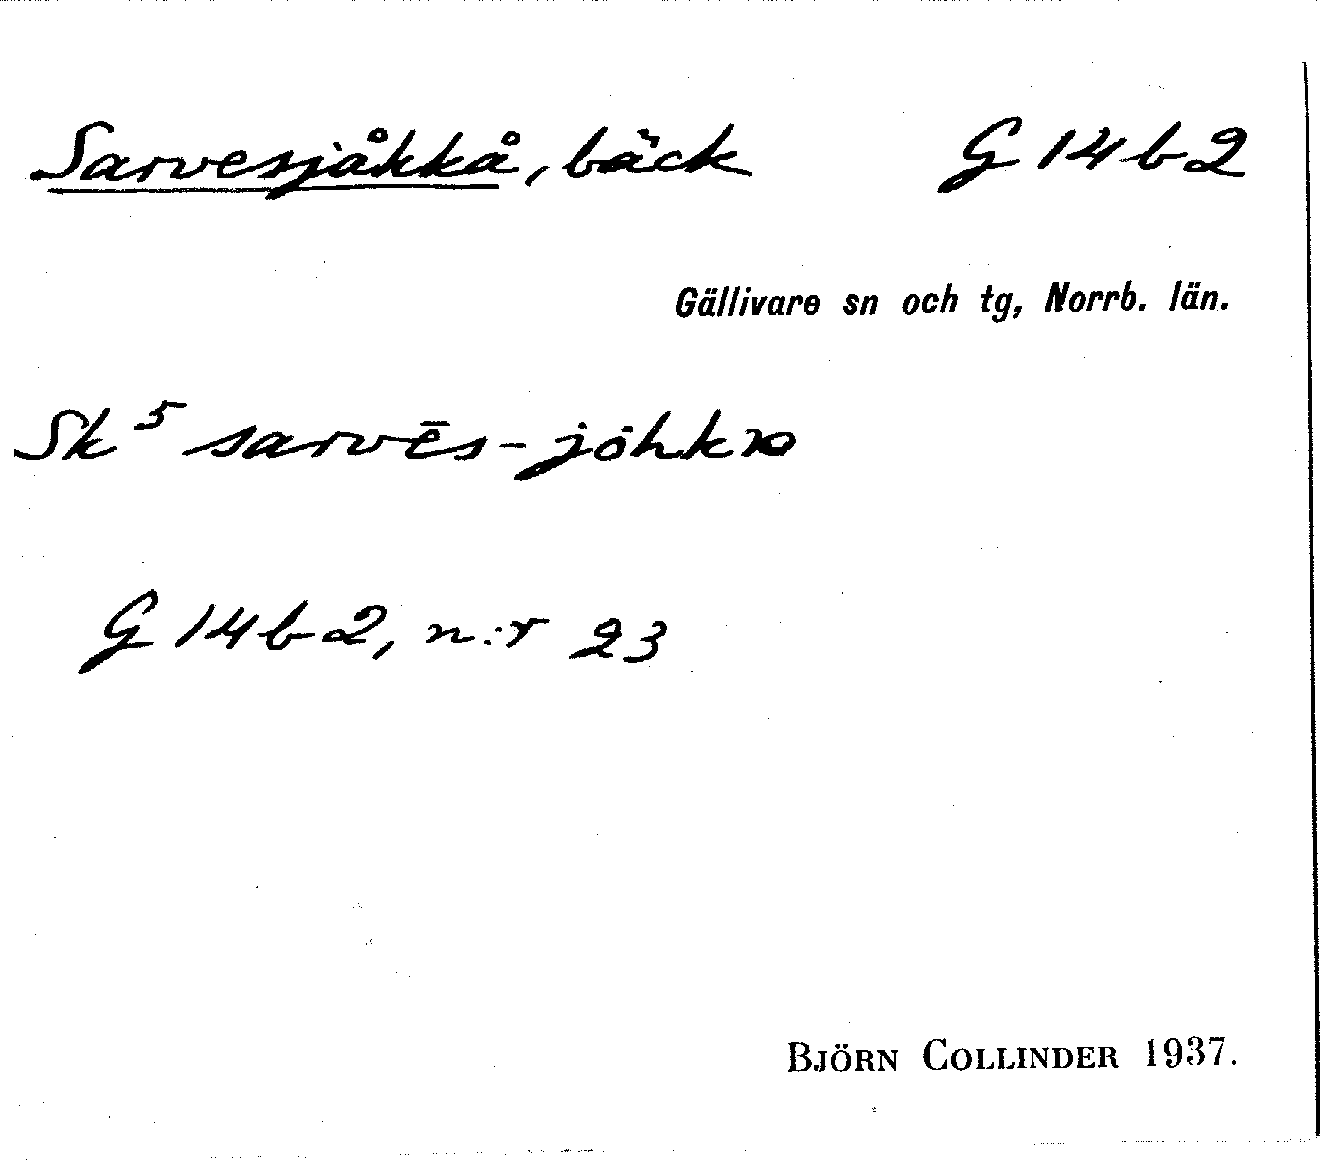 Sarvesjåkkå, bäck G 14 b 2
Gällivare sn och tg, Norrb. län.
Sk⁵ sarvēs-jȯhkɷ
G 14 b 2, n:r 23
BJÖRN COLLINDER 1937.